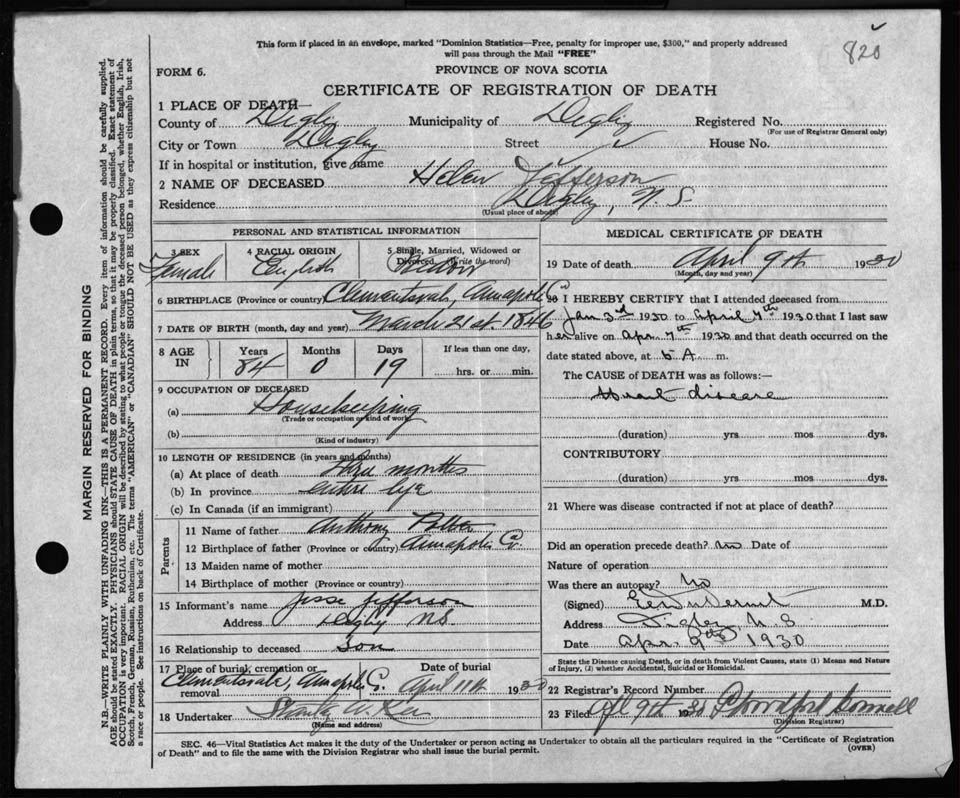 This form if placed in an envelope, marked "Dominion Statistics—Free, penalty for improper use, $300," and properly addressed
will pass through the Mail "FREE"
820
FORM 6.
PROVINCE OF NOVA SCOTIA
CERTIFICATE OF REGISTRATION OF DEATH
1 PLACE OF DEATH—
County of Digby Municipality of Digby Registered No.
(For use of Registrar General only)
City or Town Digby Street House No.
If in hospital or institution, give name
2 NAME OF DECEASED Helen Jefferson
Residence Digby, N. S
(Usual place of abode)
PERSONAL AND STATISTICAL INFORMATION
3 SEX Female
4 RACIAL ORIGIN English
5 Single, Married, Widowed or Divorced (Write the word) Widow
6 BIRTHPLACE (Province or country) Clementsvale, Annapolis Co.
7 DATE OF BIRTH (month, day and year) March 21st. 1846
8 AGE IN Years 84 Months 0 Days 19 If less than one day, hrs. or min.
9 OCCUPATION OF DECEASED
(a) Housekeeping
(Trade or occupation or kind of work)
(b)
(Kind of industry)
10 LENGTH OF RESIDENCE (in years and months)
(a) At place of death three months
(b) In province entire life
(c) In Canada (if an immigrant)
Parents
11 Name of father Anthony Potter
12 Birthplace of father (Province or country) Annapolis Co.
13 Maiden name of mother
14 Birthplace of mother (Province or country)
15 Informant's name Jesse Jefferson
Address Digby N.S.
16 Relationship to deceased Son
17 Place of burial, cremation or removal Clementsvale, Annapolis Co. Date of burial April 11th 1930
18 Undertaker
(Name and address)
MEDICAL CERTIFICATE OF DEATH
19 Date of death April 9th 1930
(Month, day and year)
20 I HEREBY CERTIFY that I attended deceased from
Jan 3rd 1930 to April 7th 1930 that I last saw
her alive on Apr. 7th 1930 and that death occurred on the
date stated above, at 6 A. m.
The CAUSE OF DEATH was as follows:—
Heart disease
(duration) yrs mos dys.
CONTRIBUTORY
(duration) yrs mos dys.
21 Where was disease contracted if not at place of death?
Did an operation precede death? no Date of
Nature of operation
Was there an autopsy? No
(Signed) M.D.
Address Digby N S
Date Apr. 9th 1930
State the Disease causing Death, or in death from Violent Causes, state (1) Means and Nature
of Injury, (2) whether Accidental, Suicidal or Homicidal.
22 Registrar's Record Number
23 Filed Apl 9th 1930
(Division Registrar)
SEC. 46—Vital Statistics Act makes it the duty of the Undertaker or person acting as Undertaker to obtain all the particulars required in the "Certificate of Registration
of Death" and to file the same with the Division Registrar who shall issue the burial permit.
(OVER)
MARGIN RESERVED FOR BINDING
N.B.—WRITE PLAINLY WITH UNFADING INK—THIS IS A PERMANENT RECORD. Every item of information should be carefully supplied.
AGE should be stated EXACTLY. PHYSICIANS should STATE CAUSE OF DEATH in plain terms, so that it may be properly classified. Exact statement of
OCCUPATION is very important. RACIAL ORIGIN will be described by stating to what people or tongue the deceased person belonged, whether English, Irish,
Scotch, French, German, Russian, Ruthenian, etc. The terms "AMERICAN" or "CANADIAN" SHOULD NOT BE USED as they express citizenship but not
a race or people. See instructions on back of Certificate.